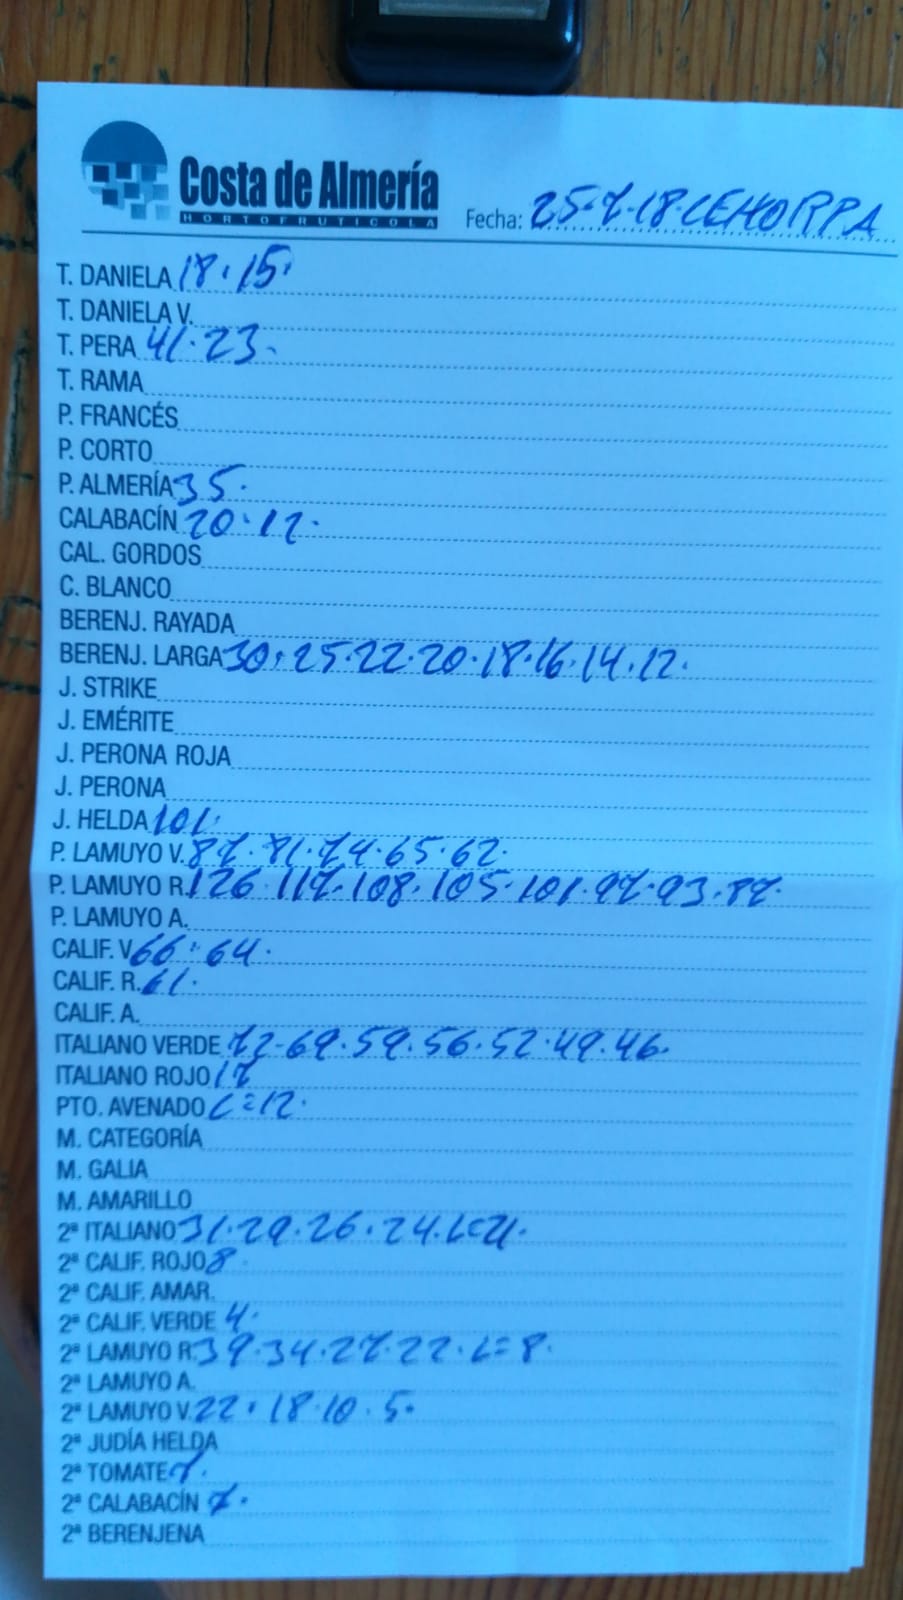 Costa de Almería
HORTOFRUTICOLA
Fecha: 25-7-18. CEHORPA
T. DANIELA 18. 15.
T. DANIELA V.
T. PERA 41. 23.
T. RAMA
P. FRANCÉS
P. CORTO
P. ALMERÍA 35.
CALABACÍN 20. 12.
CAL. GORDOS
C. BLANCO
BERENJ. RAYADA
BERENJ. LARGA 30. 25. 22. 20. 18. 16. 14. 12.
J. STRIKE
J. EMÉRITE
J. PERONA ROJA
J. PERONA
J. HELDA 101.
P. LAMUYO V. 87. 81. 74. 65. 62.
P. LAMUYO R. 126. 117. 108. 105. 101. 97. 93. 87.
P. LAMUYO A.
CALIF. V. 66. 64.
CALIF. R. 61.
CALIF. A.
ITALIANO VERDE 72. 69. 59. 56. 52. 49. 46.
ITALIANO ROJO 17
PTO. AVENADO L=12.
M. CATEGORÍA
M. GALIA
M. AMARILLO
2ª ITALIANO 31. 29. 26. 24. L=21.
2ª CALIF. ROJO 8
2ª CALIF. AMAR.
2ª CALIF. VERDE 4.
2ª LAMUYO R. 39. 34. 27. 22. L=8.
2ª LAMUYO A.
2ª LAMUYO V. 22. 18. 10. 5.
2ª JUDÍA HELDA
2ª TOMATE 7.
2ª CALABACÍN 7.
2ª BERENJENA